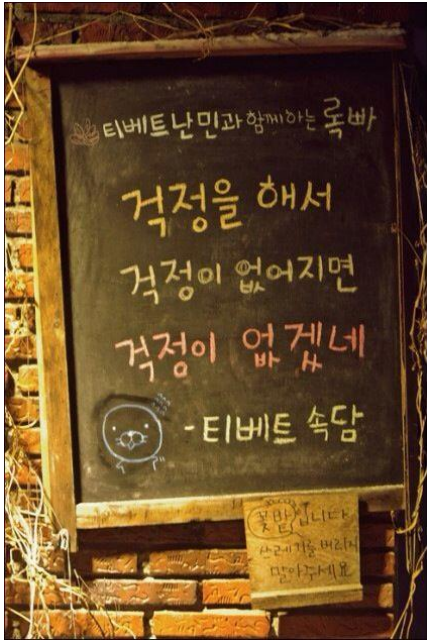 티베트난민과 함께하는 록빠
걱정을 해서
걱정이 없어지면
걱정이 없겠네
-티베트 속담
꽃밭입니다
쓰레기를 버리지
말아주세요